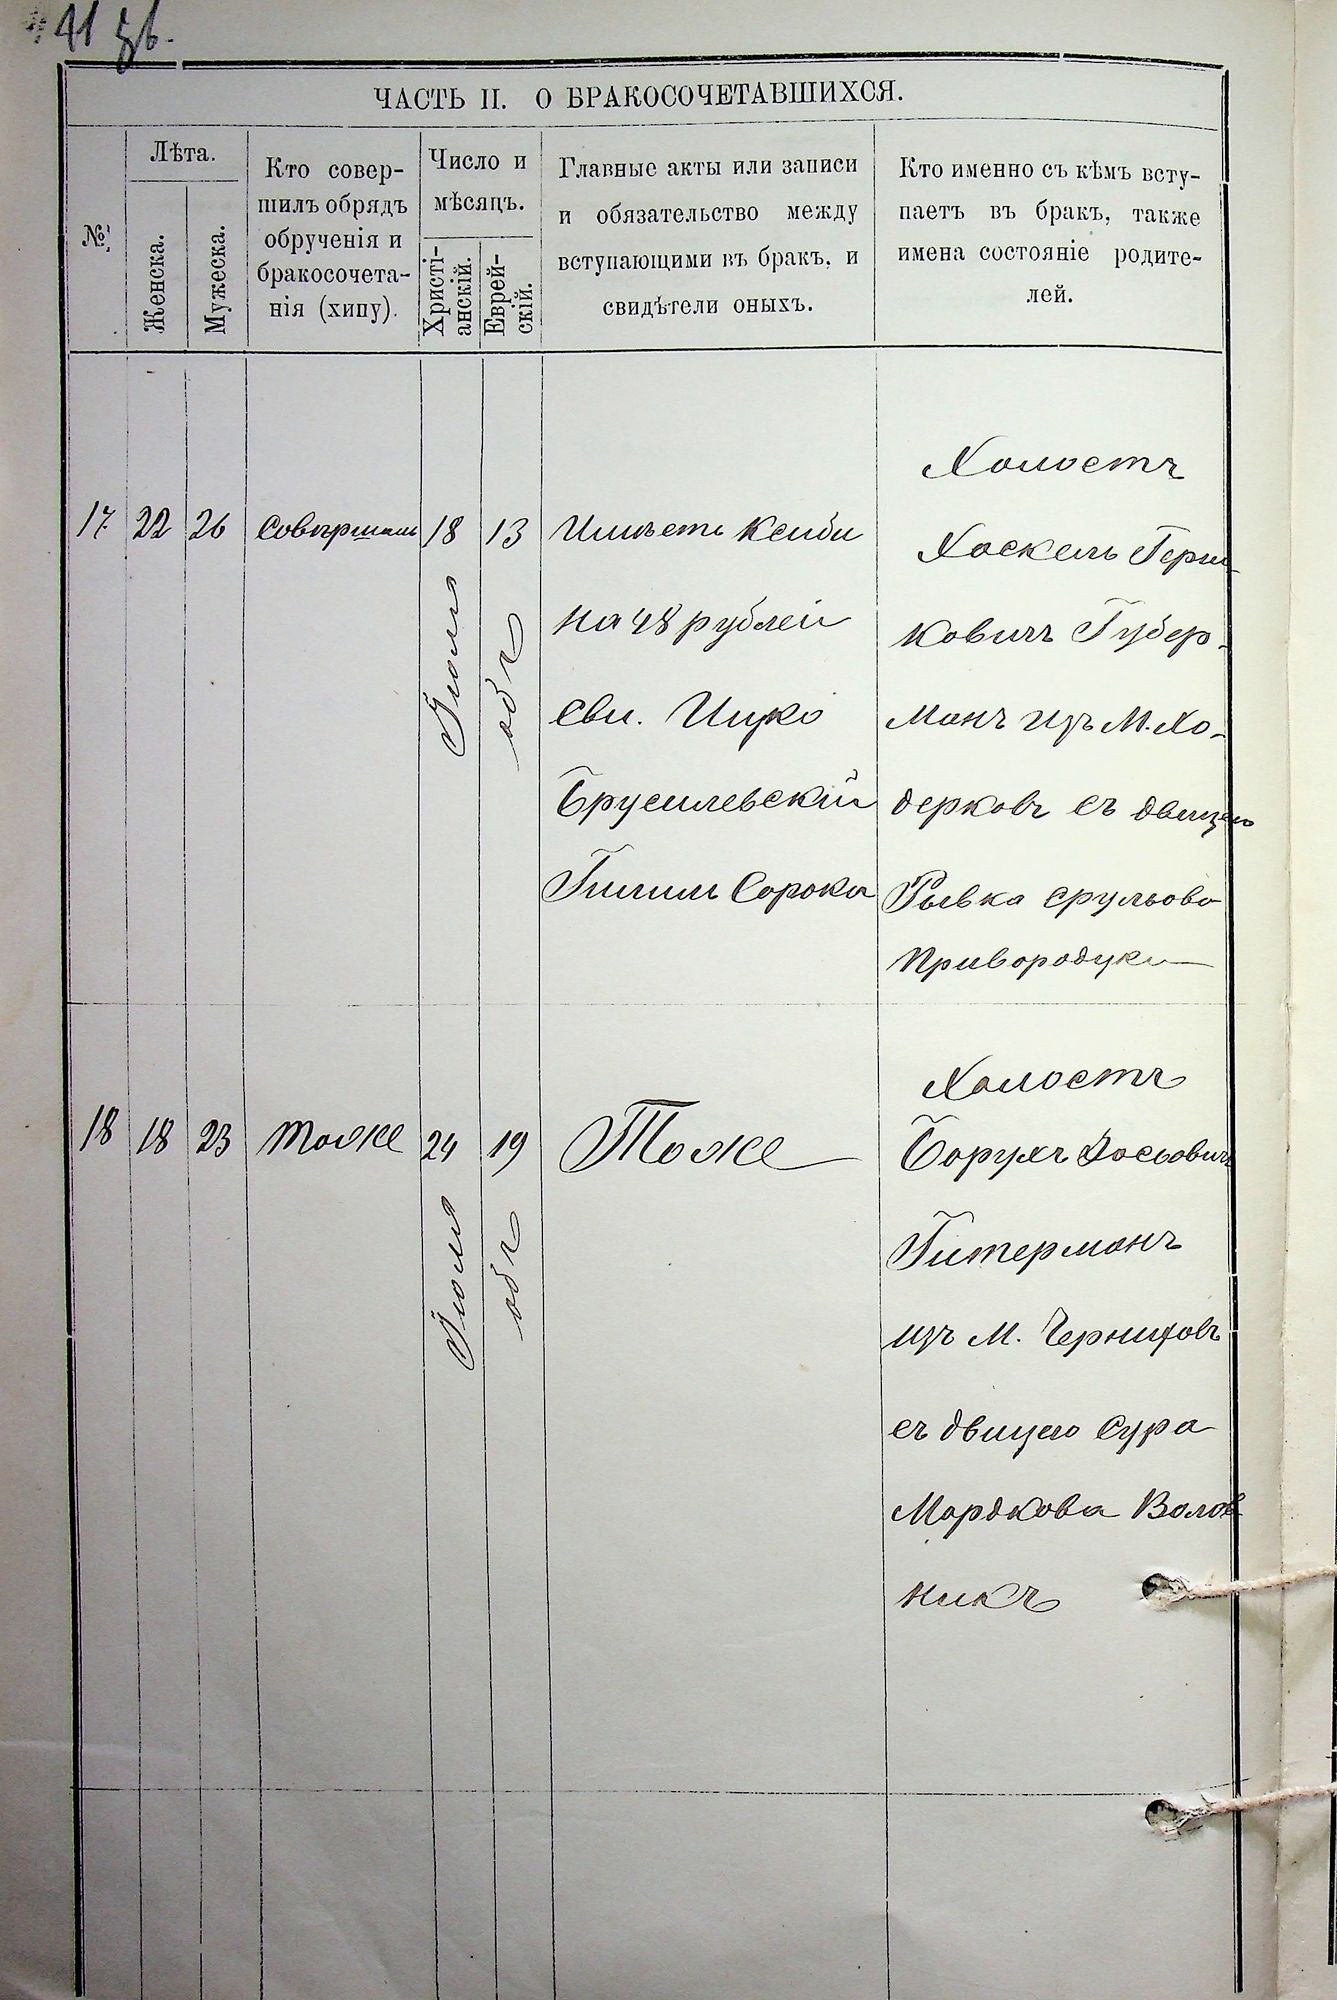 41
ЧАСТЬ II. О БРАКОСОЧЕТАВШИХСЯ.
№
Лѣта.
Женска.
Мужеска.
Кто совер-
шилъ обрядъ
обрученія и
бракосочета-
нія (хипу).
Число и
мѣсяцъ.
Христі-
анскій.
Еврей-
скій.
Главные акты или записи
и обязательство между
вступающими въ бракъ, и
свидѣтели оныхъ.
Кто именно съ кѣмъ всту-
паетъ въ бракъ, также
имена состояніе родите-
лей.
17
22
26
18
Іюля
13
на 48 рублей
Ицко
Брусилевскій
Сорока
Холостъ
Хаскель Герш-
ковичъ Губер-
манъ изъ М. Хо-
дерковъ съ двицею
Рывка Срульова
Привородуки
18
18
23
тоже
24
Іюля
19
Тоже
Холостъ
Борухъ Іосьовичъ
Гитерманъ
изъ М. Черняховъ
съ двицею Сура
Мордкова Волов
никъ